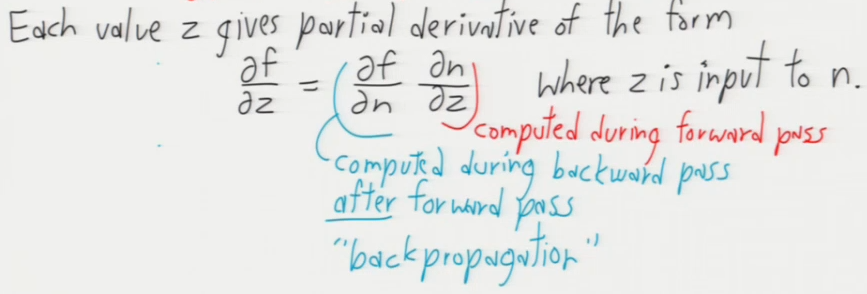 Each value z gives partial derivative of the form
∂f/∂z = (∂f/∂n ∂n/∂z) where z is input to n.
computed during forward pass
computed during backward pass
after forward pass
"backpropagation"